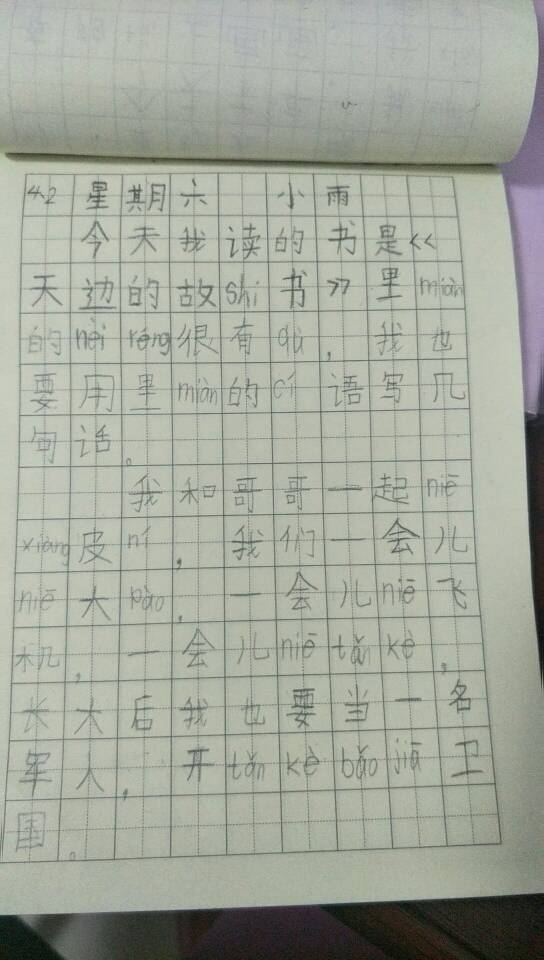 4.2 星期六 小雨
今天我读的书是《
天边的故shi书》里miàn
的nèi róng很有qù，我也
要用里miàn的cí语写几
句话。
我和哥哥一起niē
xiàng皮ní，我们一会儿
niē大pào，一会儿niē飞
机，一会儿niē tǎn kè，
长大后我也要当一名
军人，开tǎn kè bǎo jiā卫
国。